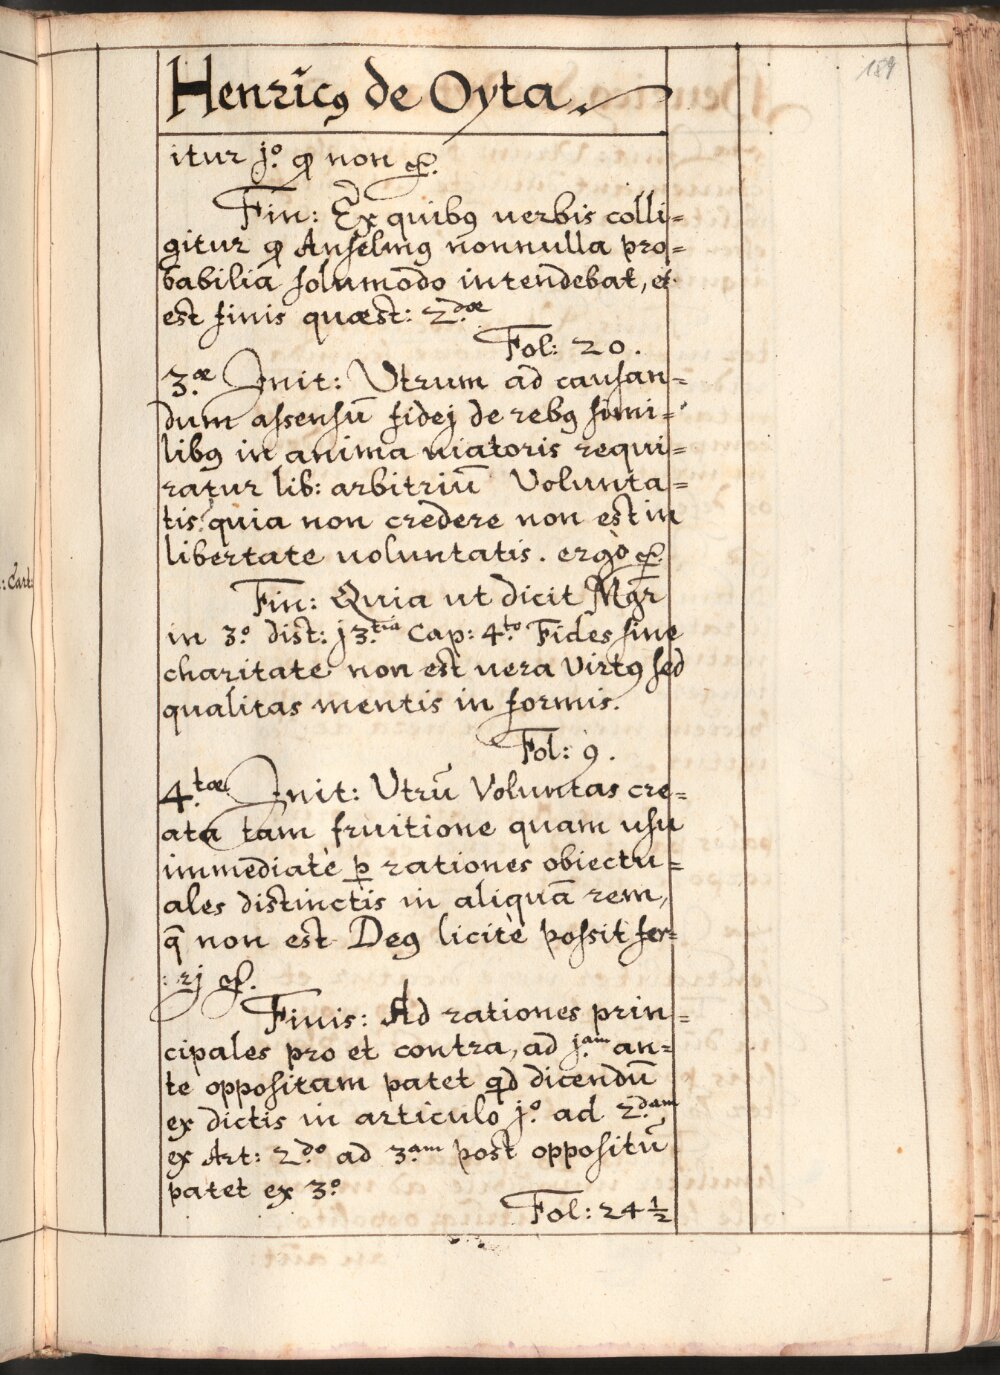 Henricꝰ de Oyta
189
itur jº. ꝙ non ꝛc.
Fin: Ex quibꝰ uerbis colli=
gitur ꝙ Anselmꝰ nonnulla pro=
babilia solum̄odo intendebat, et
est finis quæst: 2.dæ
Fol: 20.
3.æ Init: Vtrum ad causan=
dum assensū fidej de rebꝰ simi=
libꝰ in anima uiatoris requi=
ratur lib: arbitriū Volunta=
tis: quia non credere non est in
libertate uoluntatis. ergò ꝛc.
: Cart:
Fin: Quia ut dicit Mgr̄
in 3.º dist: j3.tia Cap: 4.to Fides sine
charitate non est uera virtꝰ sed
qualitas mentis in formis.
Fol: 9.
4.tæ Init: Utrū Voluntas cre=
ata tam fruitione quam usu
immediatè ꝑ rationes obiectu=
ales distinctis in aliquā rem,
q̄ non est Deꝰ licitè possit fer=
:rj ꝛc.
Finis: Ad rationes prin=
cipales pro et contra, ad j.am an=
te oppositam patet qd dicendū
ex dictis in articulo j.º ad 2.dam
ex Art: 2.do ad 3.am post oppositū
patet ex 3.º
Fol: 24 ½